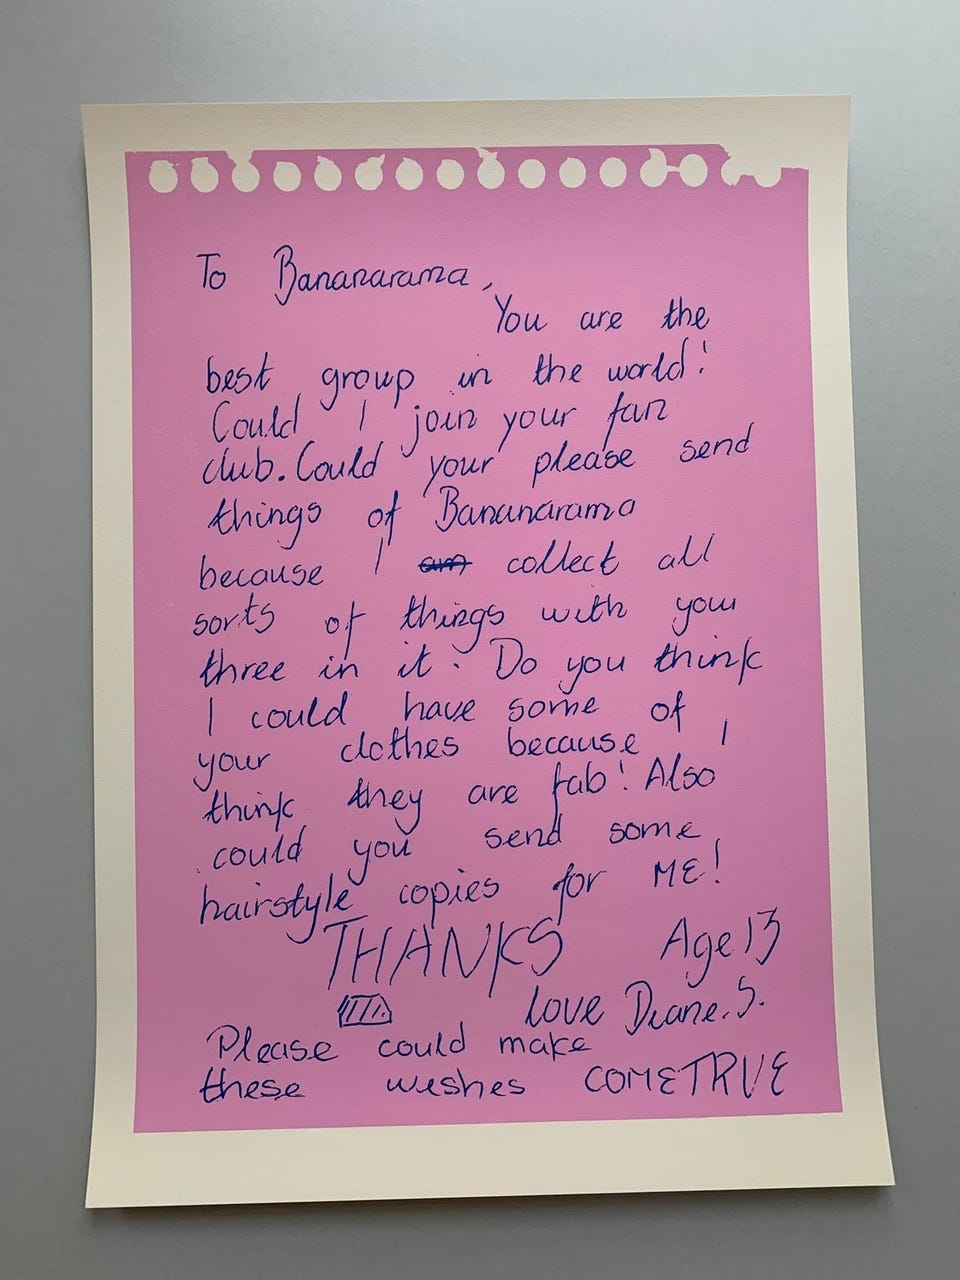 To Bananarama,
You are the
best group in the world!
Could I join your fan
club. Could your please send
things of Bananarama
because I am collect all
sorts of things with you
three in it. Do you think
I could have some of
your clothes because I
think they are fab! Also
could you send some
hairstyle copies for ME!
THANKS Age 13
love Diane.S.
Please could make
these wishes COMETRUE